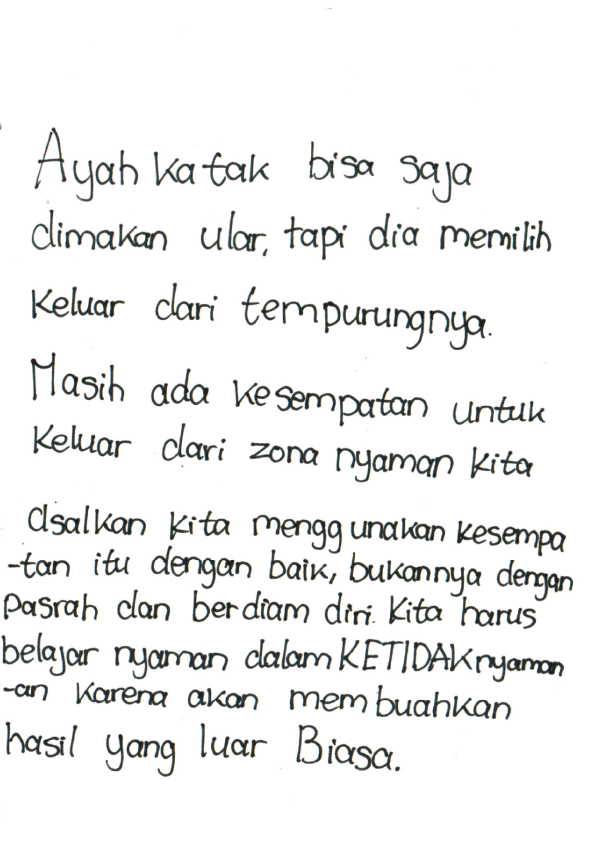 Ayah katak bisa saja
dimakan ular, tapi dia memilih
keluar dari tempurungnya.
Masih ada kesempatan untuk
keluar dari zona nyaman kita
asalkan kita menggunakan kesempa
-tan itu dengan baik, bukannya dengan
pasrah dan berdiam diri. Kita harus
belajar nyaman dalam KETIDAKnyaman
-an karena akan membuahkan
hasil yang luar Biasa.